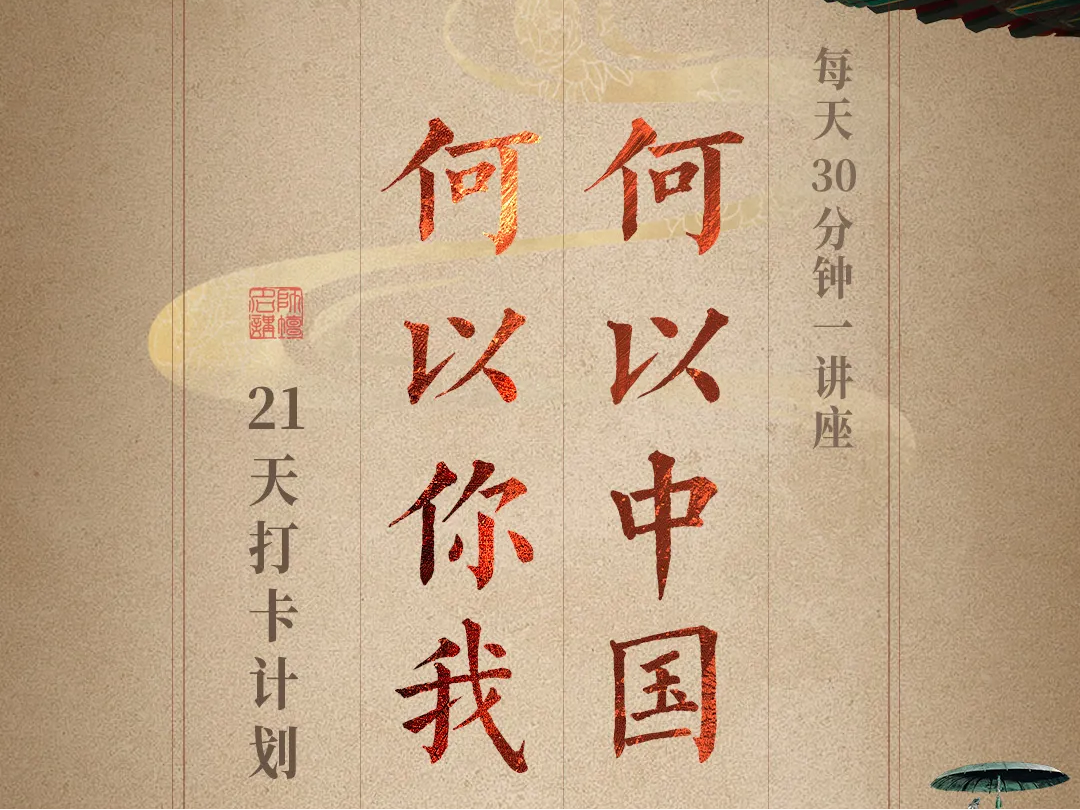 每天30分钟一讲座
何以中国
何以你我
名师讲坛
21天打卡计划